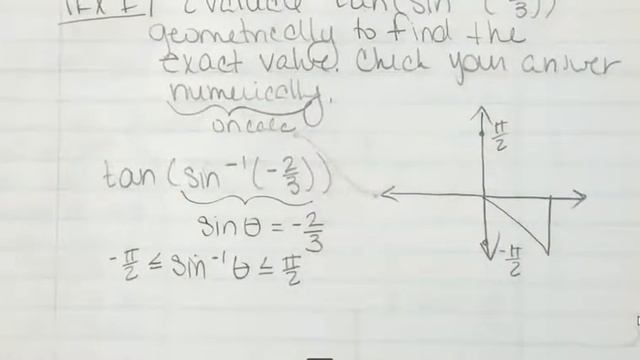 [Ex 1] Evaluate tan(sin⁻¹(-2/3))
geometrically to find the
exact value. Check your answer
numerically.
on calc
tan(sin⁻¹(-2/3))
sin θ = -2/3
-π/2 ≤ sin⁻¹θ ≤ π/2
π/2
-π/2